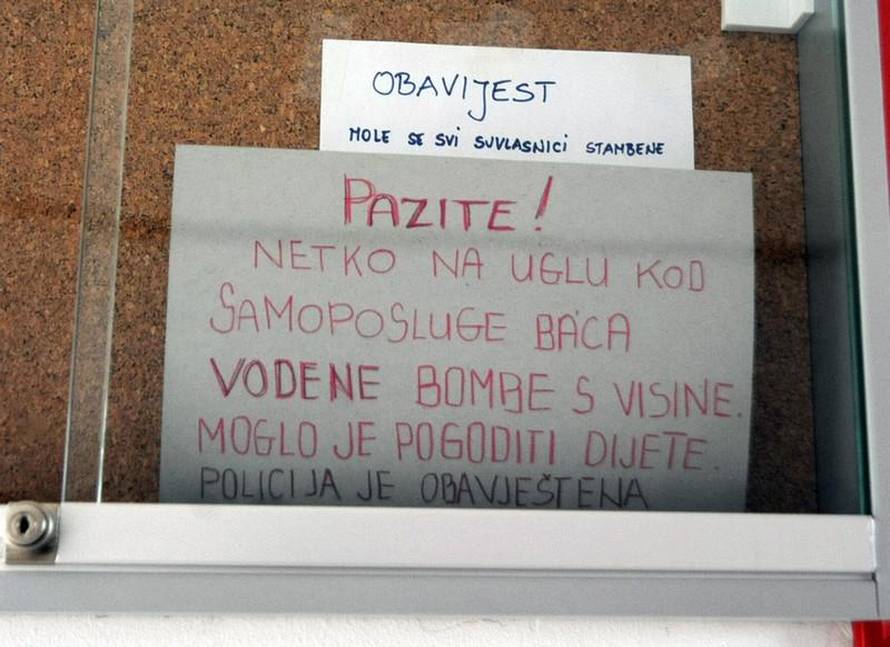 OBAVIJEST
MOLE SE SVI SUVLASNICI STAMBENE
PAZITE!
NETKO NA UGLU KOD
SAMOPOSLUGE BACA
VODENE BOMBE S VISINE.
MOGLO JE POGODITI DIJETE.
POLICIJA JE OBAVJEŠTENA